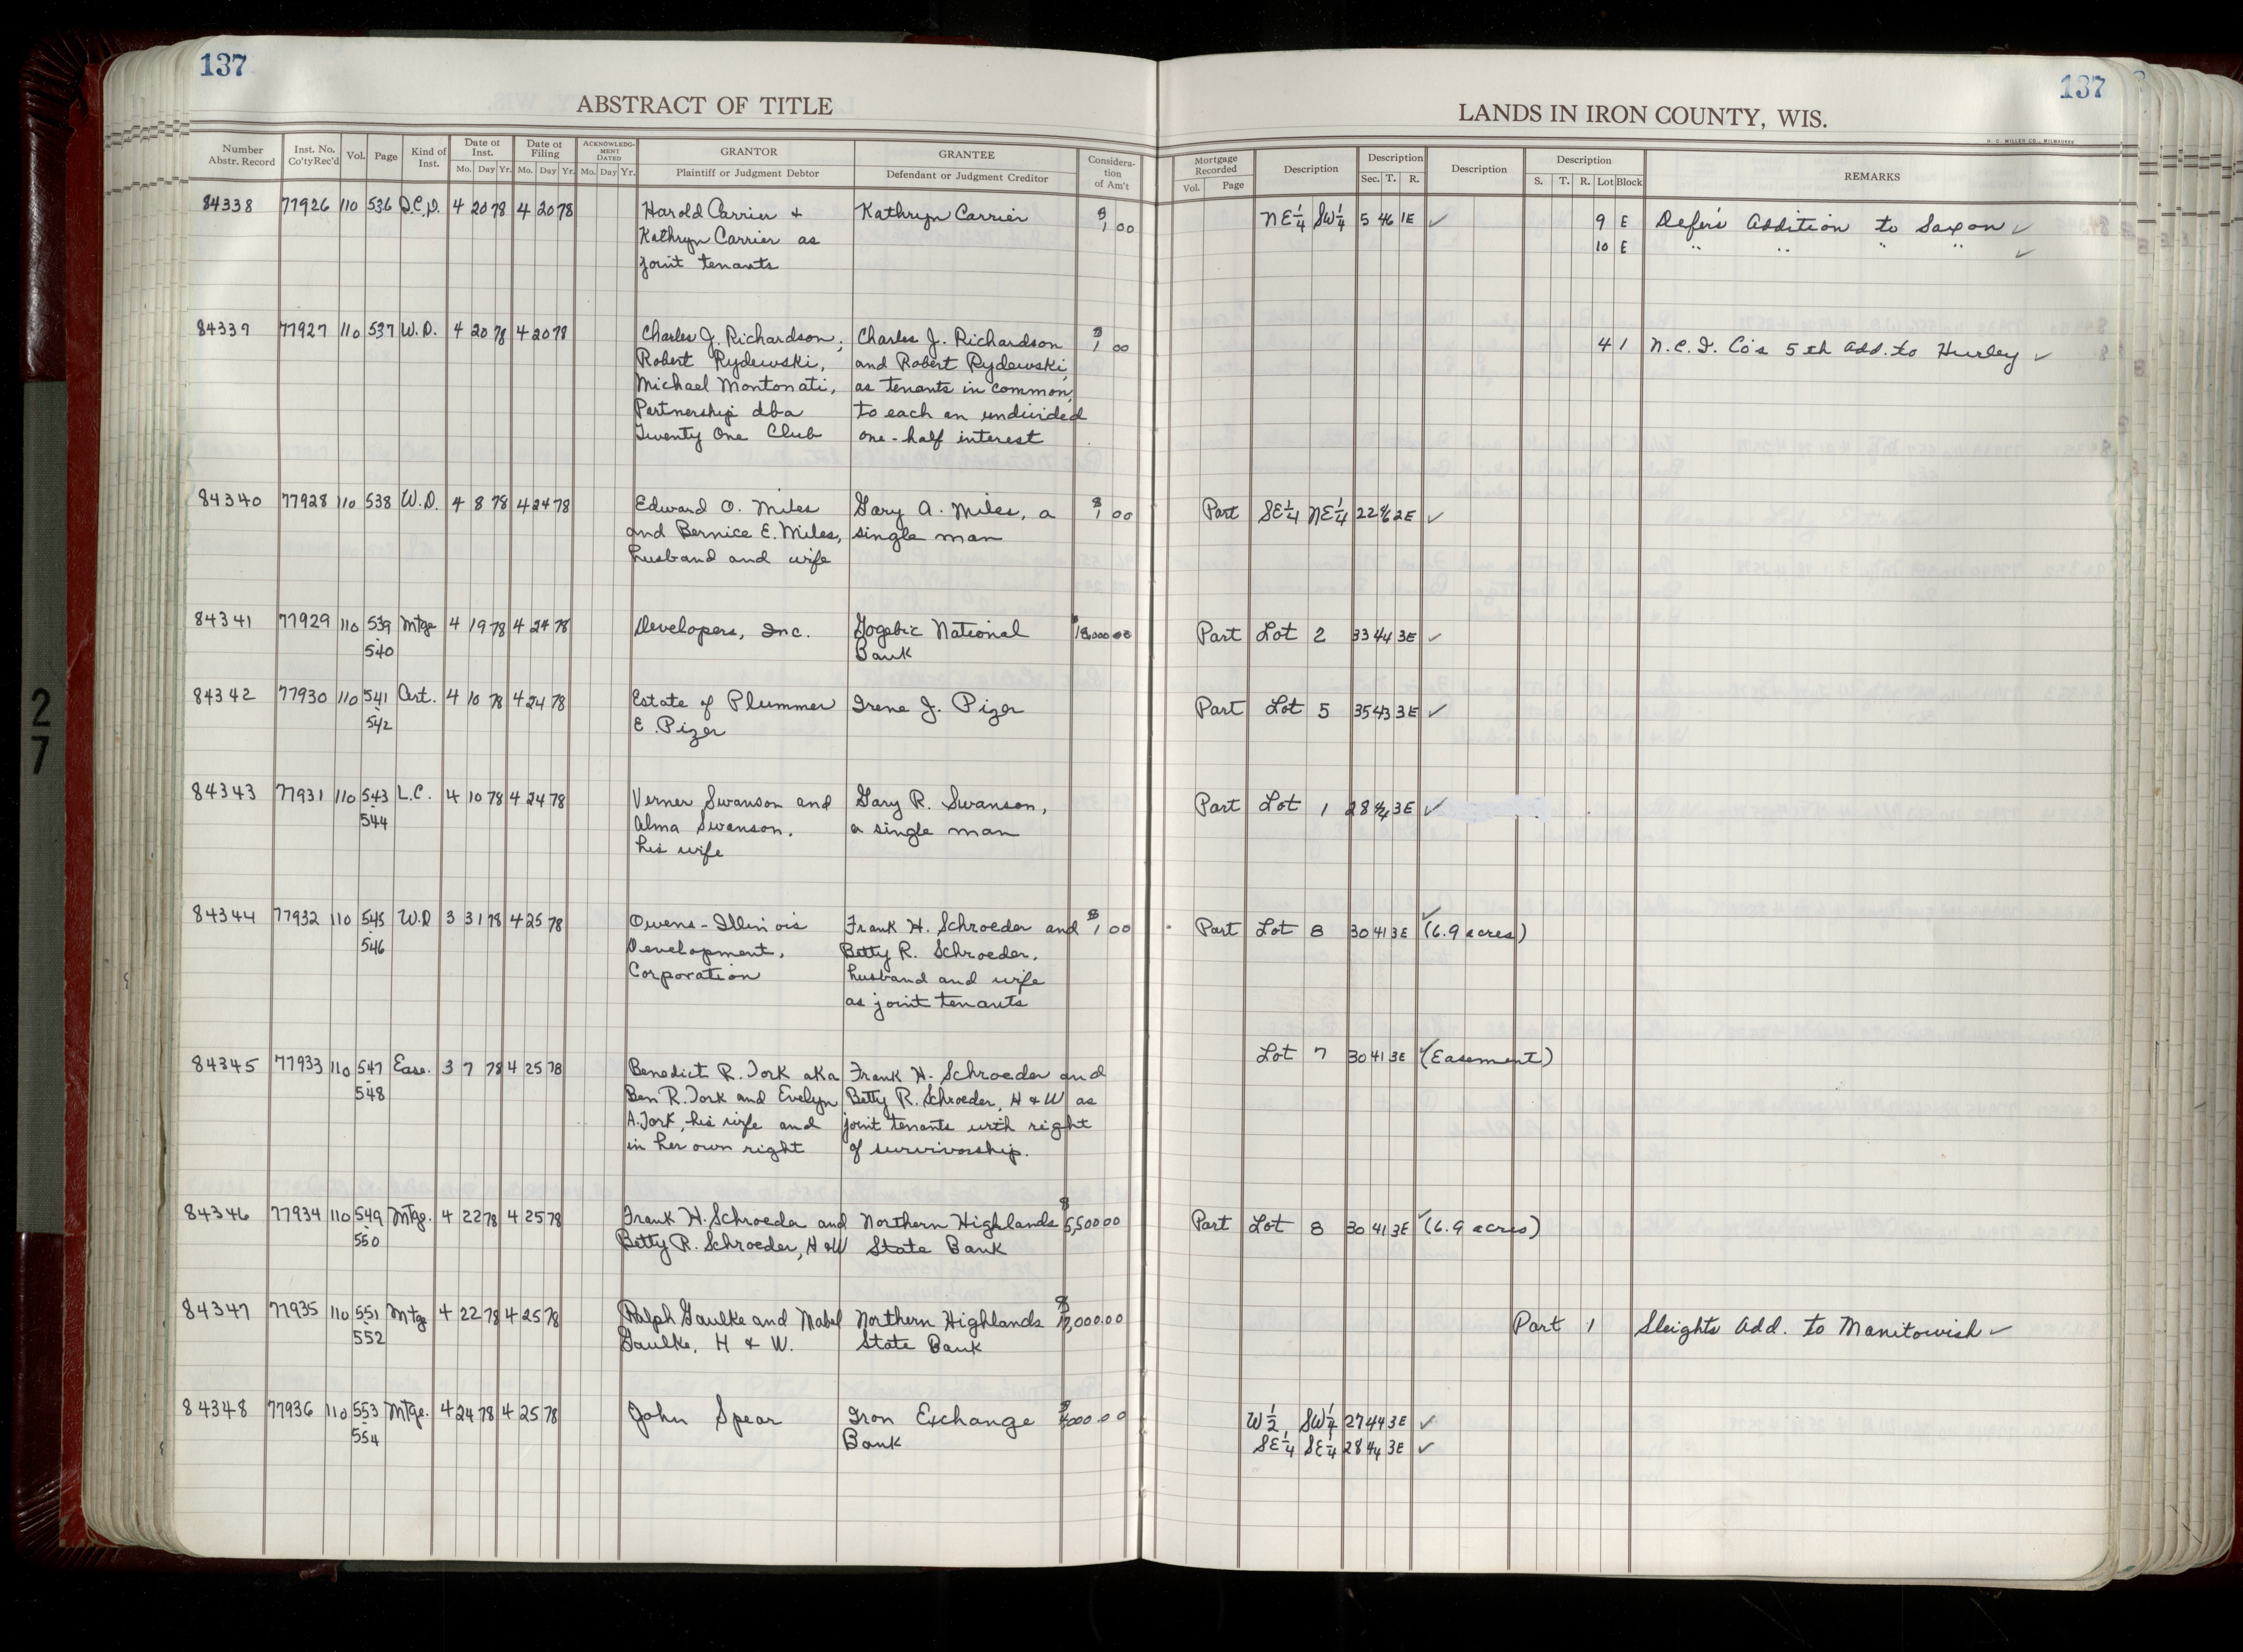 137
137
ABSTRACT OF TITLE
LANDS IN IRON COUNTY, WIS.
H. C. MILLER CO., MILWAUKEE
Number Abstr. Record | Inst. No. Co'ty Rec'd | Vol. | Page | Kind of Inst. | Date of Inst. Mo. Day Yr. | Date of Filing Mo. Day Yr. | ACKNOWLEDGMENT DATED Mo. Day Yr. | GRANTOR Plaintiff or Judgment Debtor | GRANTEE Defendant or Judgment Creditor | Consideration of Am't | Mortgage Recorded Vol. Page | Description | Description Sec. T. R. | Description | Description S. T. R. Lot Block | REMARKS
84338 77926 110 536 Q.C.D. 4 20 78 4 20 78 Harold Carrier + Kathryn Carrier $1 00 NE¼ SW¼ 5 46 1E ✓ 9 E Defer's Addition to Saxon ✓
Kathryn Carrier as 10 E " " " " ✓
joint tenants
84339 77927 110 537 W.D. 4 20 78 4 20 78 Charles J. Richardson, Charles J. Richardson $1 00 4 1 N.C.I. Co's 5th Add. to Hurley ✓
Robert Rydewski, and Robert Rydewski,
Michael Montonati, as tenants in common,
Partnership dba to each an undivided
Twenty One Club one-half interest
84340 77928 110 538 W.D. 4 8 78 4 24 78 Edward O. Miles Gary A. Miles, a $1 00 Part SE¼ NE¼ 22 46 2E ✓
and Bernice E. Miles, single man
husband and wife
84341 77929 110 539 Mtge 4 19 78 4 24 78 Developers, Inc. Gogebic National $18,000.00 Part Lot 2 33 44 3E ✓
540 Bank
84342 77930 110 541 Cert. 4 10 78 4 24 78 Estate of Plummer Irene J. Pizer Part Lot 5 35 43 3E ✓
542 E. Pizer
84343 77931 110 543 L.C. 4 10 78 4 24 78 Verner Swanson and Gary R. Swanson, Part Lot 1 28 44 3E ✓
544 Alma Swanson, a single man
his wife
84344 77932 110 545 W.D 3 31 78 4 25 78 Owens-Illinois Frank H. Schroeder and $1 00 Part Lot 8 30 41 3E ✓ (6.9 acres)
546 Development, Betty R. Schroeder,
Corporation husband and wife
as joint tenants
84345 77933 110 547 Ease. 3 7 78 4 25 78 Benedict R. Tork aka Frank H. Schroeder and Lot 7 30 41 3E ✓ (Easement)
548 Ben R. Tork and Evelyn Betty R. Schroeder, H & W as
A. Tork, his wife and joint tenants with right
in her own right of survivorship.
84346 77934 110 549 Mtge. 4 22 78 4 25 78 Frank H. Schroeder and Northern Highlands $5,500 00 Part Lot 8 30 41 3E ✓ (6.9 acres)
550 Betty R. Schroeder, H & W State Bank
84347 77935 110 551 Mtge 4 22 78 4 25 78 Ralph Gaulke and Mabel Northern Highlands Part 1 Sleights Add. to Manitowish ✓
552 Gaulke, H & W. State Bank
84348 77936 110 553 Mtge. 4 24 78 4 25 78 John Spear Iron Exchange W½ SW¼ 27 44 3E ✓
554 Bank SE¼ SE¼ 28 44 3E ✓
27